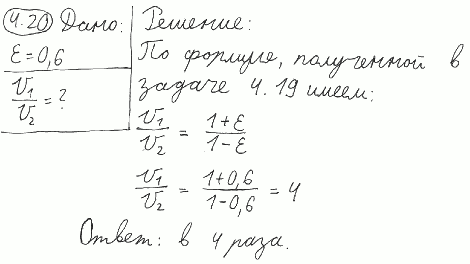 4.20 Дано:
ε = 0,6
v₁/v₂ = ?
Решение:
По формуле, полученной в
задаче 4.19 имеем:
v₁/v₂ = (1+ε)/(1-ε)
v₁/v₂ = (1+0,6)/(1-0,6) = 4
Ответ: в 4 раза.